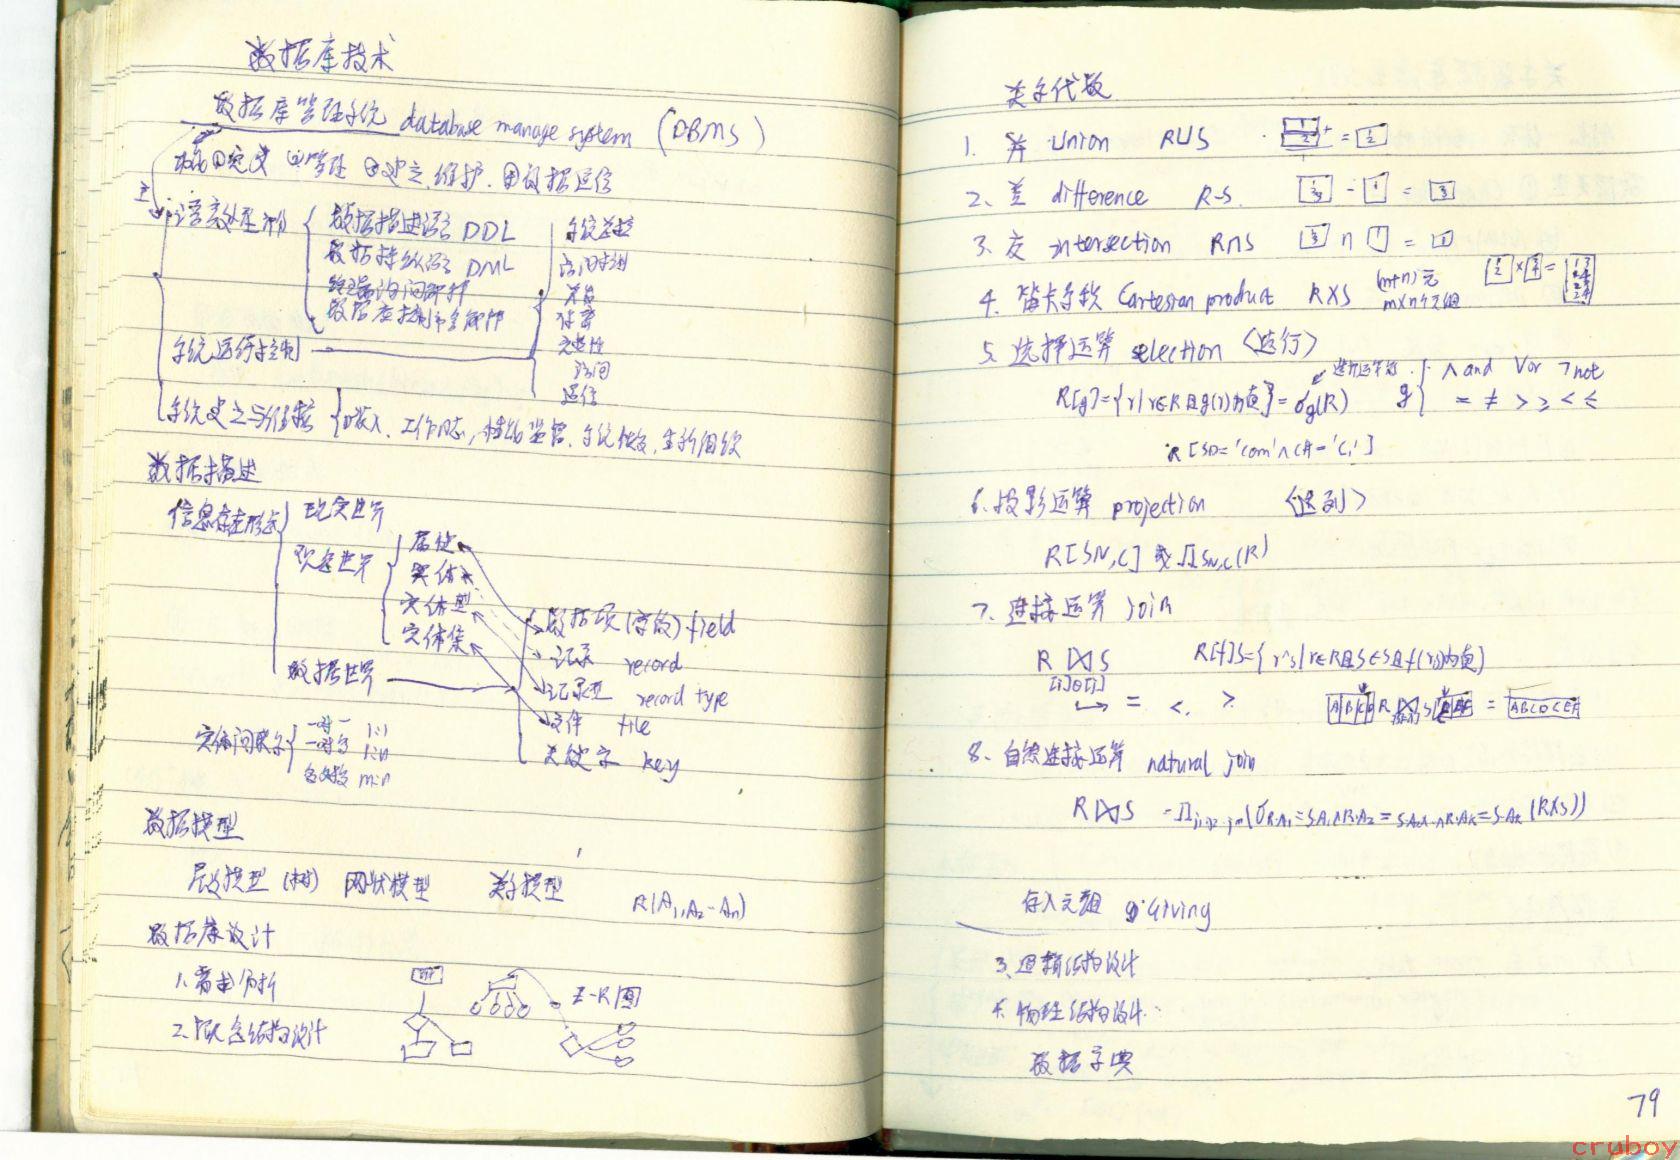 数据库技术
数据库管理系统 database manage system (DBMS)
功能 ①定义 ②管理 ③建立、维护. ④数据通信
语言处理部分
数据描述语言 DDL
数据操纵语言 DML
数据库控制命令解释
系统总控
访问控制
并发
保密
完整性
访问
通信
系统运行控制
系统建立与维护 装入、工作日志, 性能监督, 系统恢复, 重新组织
数据描述
信息存在形式
现实世界
观念世界
属性
实体
实体型
实体集
数据世界
数据项(字段) field
记录 record
记录型 record type
文件 file
关键字 key
实体间联系
一对一 1:1
一对多 1:n
多对多 m:n
数据模型
层次模型 (树) 网状模型 关系模型 R(A1,A2-An)
数据库设计
1.需求分析
2.概念结构设计
E-R图
关系代数
1. 并 Union R∪S
2. 差 difference R-S.
3. 交 intersection R∩S
4. 笛卡尔积 Cartesian product R×S (m+n)元
m×n个元组
5. 选择运算 selection <选行>
R[g]={r|r∈R且g(r)为真}=σg(R) g { ∧and ∨or ¬not
= ≠ > ≥ < ≤
R[SD='com'∧CH='C1']
6.投影运算 projection <选列>
R[SN,C] 或 ∏SN,C(R)
7. 连接运算 join
R⋈S R[f]S={r^s|r∈R且S∈S且f(r,s)为真}
[i]θ[j]
= <. >
8. 自然连接运算 natural join
R⋈S
存入元组 g:Giving
3.逻辑结构设计
4.物理结构设计
数据字典
79
cruboy